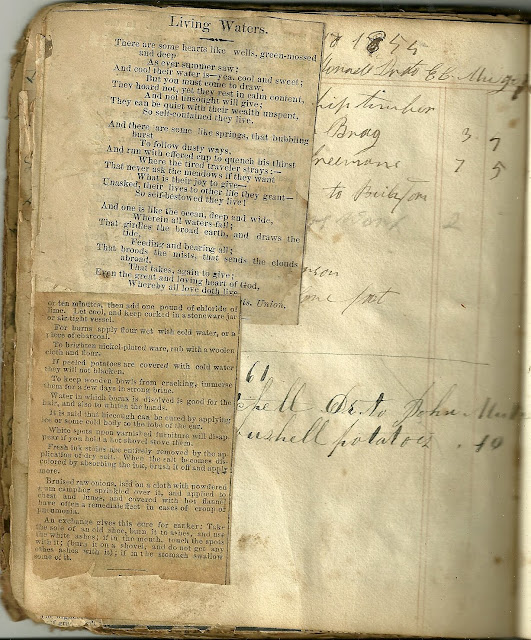 Living Waters.
There are some hearts like wells, green-mossed
and deep
As ever summer saw;
And cool their water is—yea, cool and sweet;
But you must come to draw.
They hoard not, yet they rest in calm content,
And not unsought will give;
They can be quiet with their wealth unspent,
So self-contained they live.
And there are some like springs, that bubbling
burst
To follow dusty ways,
And run with offered cup to quench his thirst
Where the tired traveler strays;—
That never ask the meadows if they want
What is their joy to give—
Unasked, their lives to other life they grant—
So self-bestowed they live!
And one is like the ocean, deep and wide,
Wherein all waters fall;
That girdles the broad earth, and draws the
tide,
Feeding and bearing all;
That broods the mists, that sends the clouds
abroad,
That takes, again to give;
Even the great and loving heart of God,
Whereby all love doth live.
Union.
or ten minutes, then add one pound of chloride of
lime. Let cool, and keep corked in a stone ware jar
or air-tight vessel.
For burns apply flour wet with cold water, or a
piece of charcoal.
To brighten nickel-plated ware, rub with a woolen
cloth and flour.
If peeled potatoes are covered with cold water
they will not blacken.
To keep wooden bowls from cracking, immerse
them for a few days in strong brine.
Water in which borax is dissolved is good for the
hair, and also to whiten the hands.
It is said that hiccough can be cured by applying
ice or some cold body to the lobe of the ear.
White spots upon varnished furniture will disap-
pear if you hold a hot shovel over them.
Fresh ink stains are entirely removed by the ap-
plication of dry salt. When the salt becomes dis-
colored by absorbing the ink, brush it off and apply
more.
Bruised raw onions, laid on a cloth with powdered
gum camphor sprinkled over it, and applied to
chest and lungs, and covered with hot flannel
have often a remedial effect in cases of croup or
pneumonia.
An exchange gives this cure for canker: Take
the sole of an old shoe, burn it to ashes, and use
the white ashes; if in the mouth, touch the spots
with it; (burn it on a shovel, and do not get any
other ashes with it); if in the stomach swallow
some of it.
1855
Dr to
timber
Brag 3 7
7 5
to
2
61
Dr. to John
bushell potatoes .40